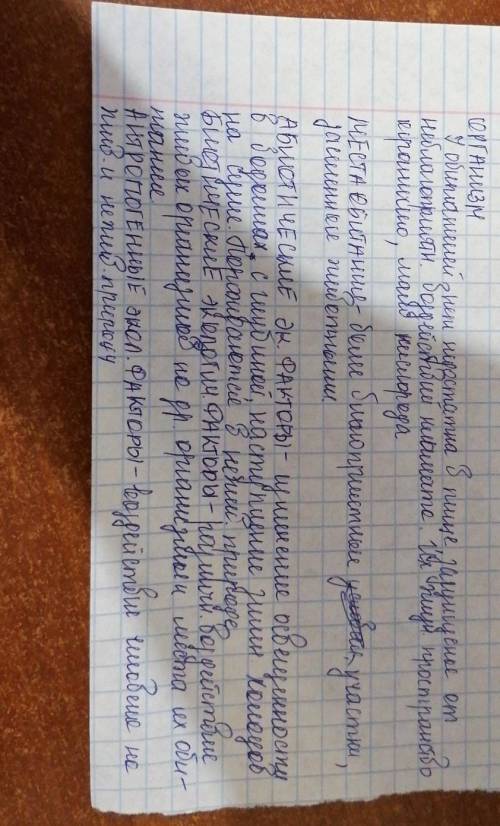 ОРГАНИЗМ
У обитателей нет недостатка в пище, защищение от
неблагоприятн. воздействия климата. Их пищи пространство
ограничено, мало кислорода
МЕСТА ОБИТАНИЯ - более благоприятные участки,
заселенные животными
АБИОТИЧЕСКИЕ ЭК. ФАКТОРЫ - изменение освещенности
в водоемах с глубиной, наступление зимних холодов
на суше. Проявляются в неживой природе
БИОТИЧЕСКИЕ экологич. ФАКТОРЫ - различн. воздействие
живых организмов на др. организмы и места их оби-
тание
АНТРОПОГЕННЫЕ экол. ФАКТОРЫ - воздействие человека на
жив. и нежив. природу